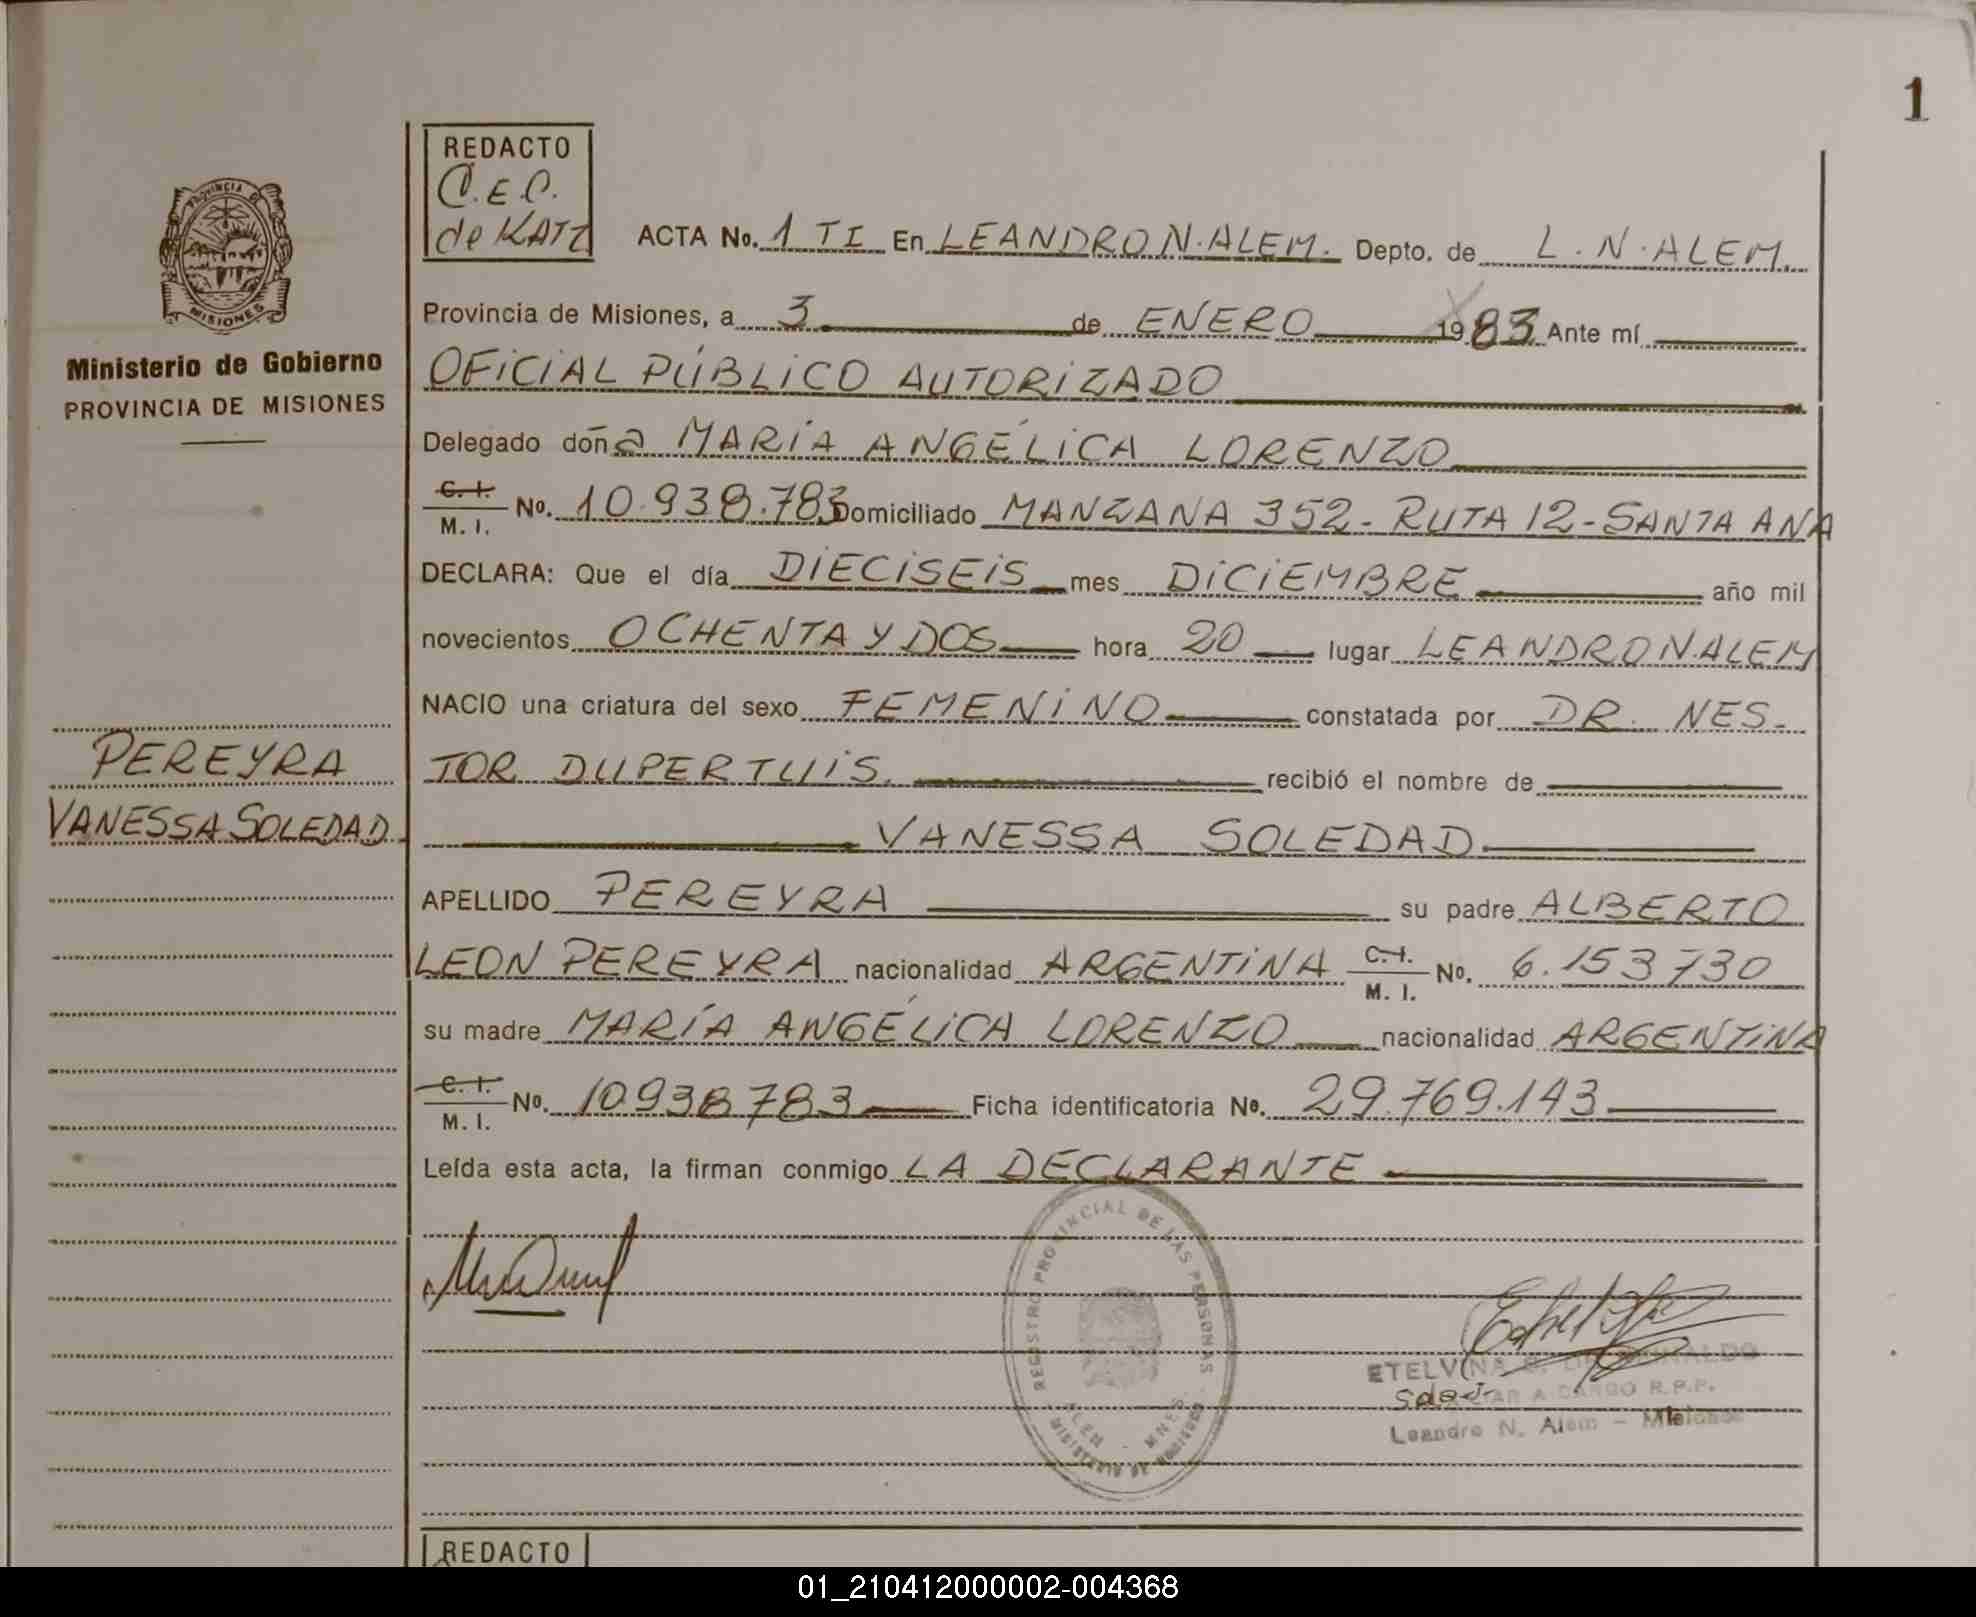 1
REDACTO
C.E.C.
de KATZ
ACTA No. 1 TI En LEANDRO N. ALEM. Depto. de L. N. ALEM.
PROVINCIA DE
MISIONES
Ministerio de Gobierno
PROVINCIA DE MISIONES
Provincia de Misiones, a 3 de ENERO 1983 Ante mí
OFICIAL PÚBLICO AUTORIZADO
Delegado doña MARÍA ANGÉLICA LORENZO
C. I.
M. I. No. 10.938.783 Domiciliado MANZANA 352 - RUTA 12 - SANTA ANA
DECLARA: Que el día DIECISEIS mes DICIEMBRE año mil
novecientos OCHENTA Y DOS hora 20 lugar LEANDRO N. ALEM
NACIO una criatura del sexo FEMENINO constatada por DR. NES-
TOR DUPERTUIS. recibió el nombre de
VANESSA SOLEDAD
PEREYRA
VANESSA SOLEDAD
APELLIDO PEREYRA su padre ALBERTO
LEON PEREYRA nacionalidad ARGENTINA C. I. M. I. No. 6.153730
su madre MARÍA ANGÉLICA LORENZO nacionalidad ARGENTINA
C. I.
M. I. No. 10938783 Ficha identificatoria No. 29.769.143
Leída esta acta, la firman conmigo LA DECLARANTE
REGISTRO PROVINCIAL DE LAS PERSONAS
ALEM - MNES.
ETELVINA
A CARGO R.P.P.
Leandro N. Alem - Misiones
REDACTO
01_210412000002-004368